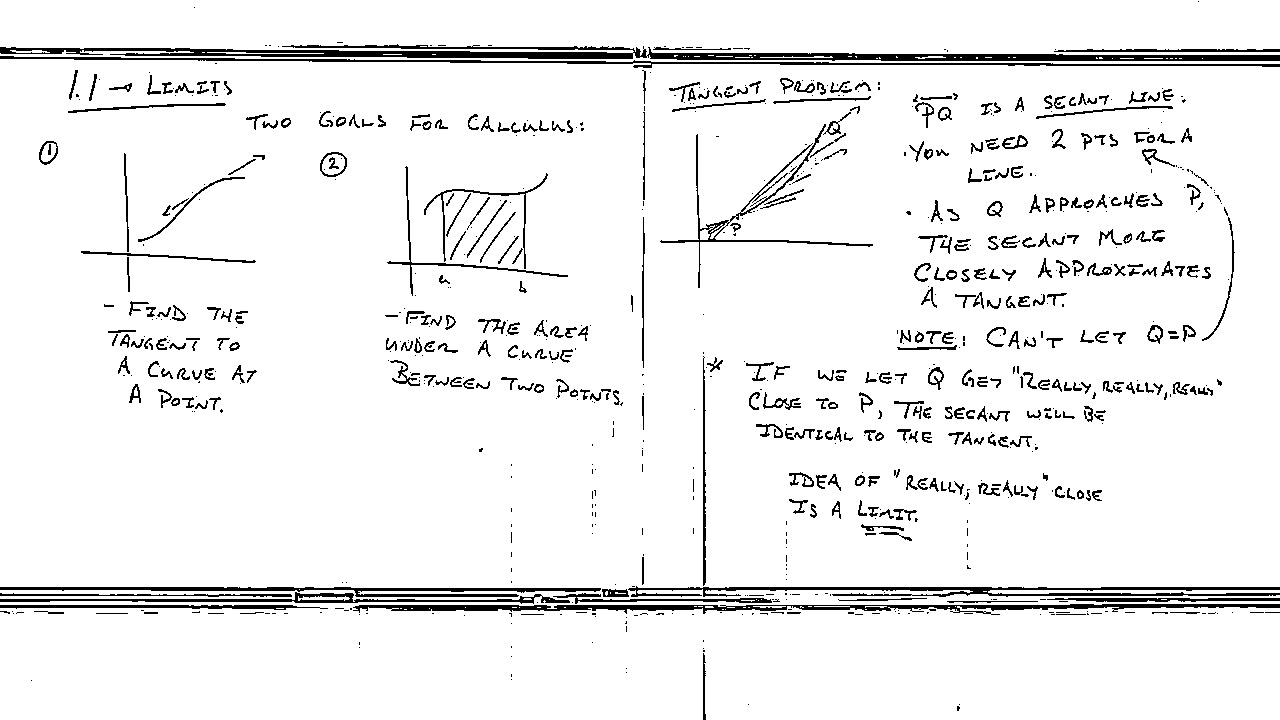 1.1 → LIMITS
TWO GOALS FOR CALCULUS:
①
②
a b
- FIND THE
TANGENT TO
A CURVE AT
A POINT.
- FIND THE AREA
UNDER A CURVE
BETWEEN TWO POINTS.
TANGENT PROBLEM:
Q
P
PQ IS A SECANT LINE.
· YOU NEED 2 PTS FOR A
LINE.
· AS Q APPROACHES P,
THE SECANT MORE
CLOSELY APPROXIMATES
A TANGENT.
NOTE: CAN'T LET Q=P
* IF WE LET Q GET "REALLY, REALLY, REALLY"
CLOSE TO P, THE SECANT WILL BE
IDENTICAL TO THE TANGENT.
IDEA OF "REALLY, REALLY" CLOSE
IS A LIMIT.